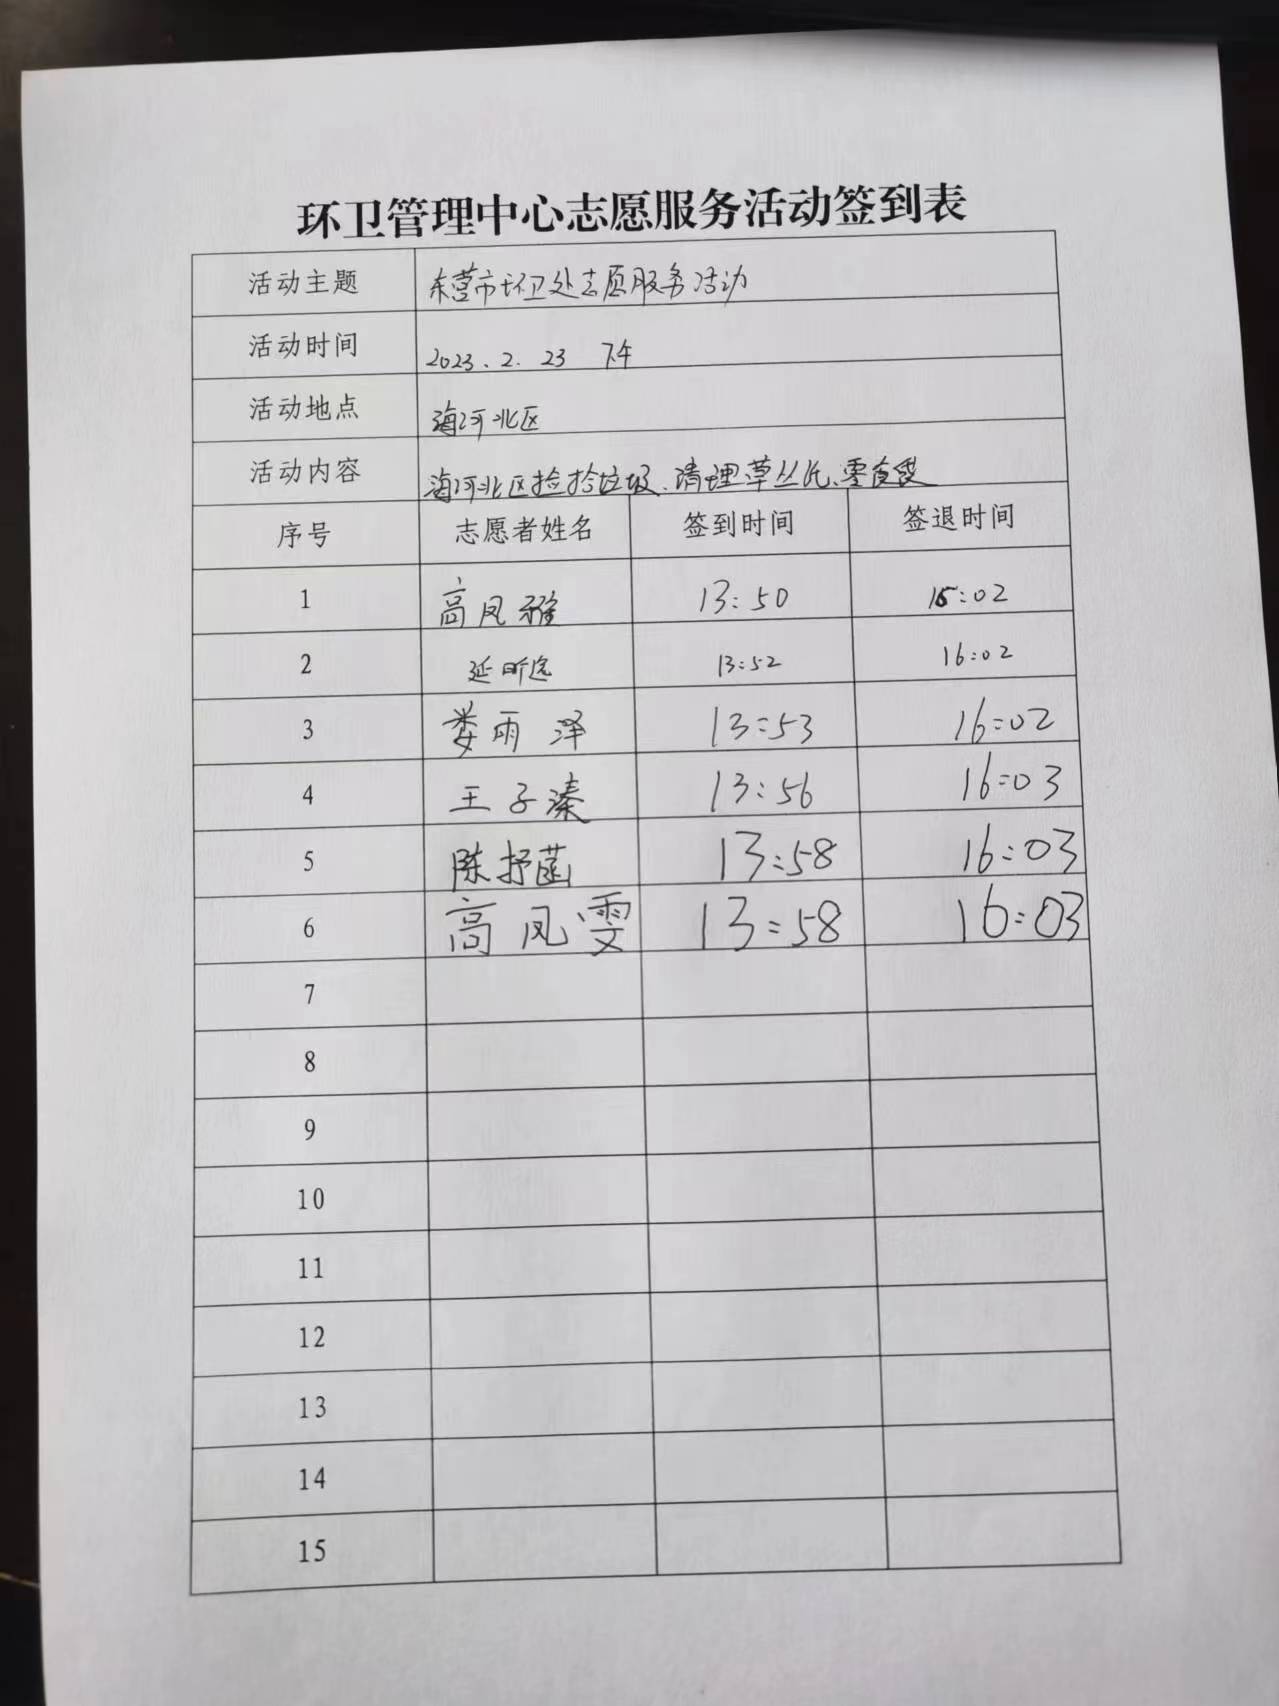 环卫管理中心志愿服务活动签到表
活动主题 东营市环卫处志愿服务活动
活动时间 2023.2.23 下午
活动地点 海河北区
活动内容 海河北区捡拾垃圾、清理草丛
序号 志愿者姓名 签到时间 签退时间
1 高凤雅 13:50 :02
2 延昕 13:52 16:02
3 娄雨泽 13:53 16:02
4 王子溱 13:56 16:03
5 陈抒菡 13:58 16:03
6 高凤雯 13:58 16:03
7
8
9
10
11
12
13
14
15